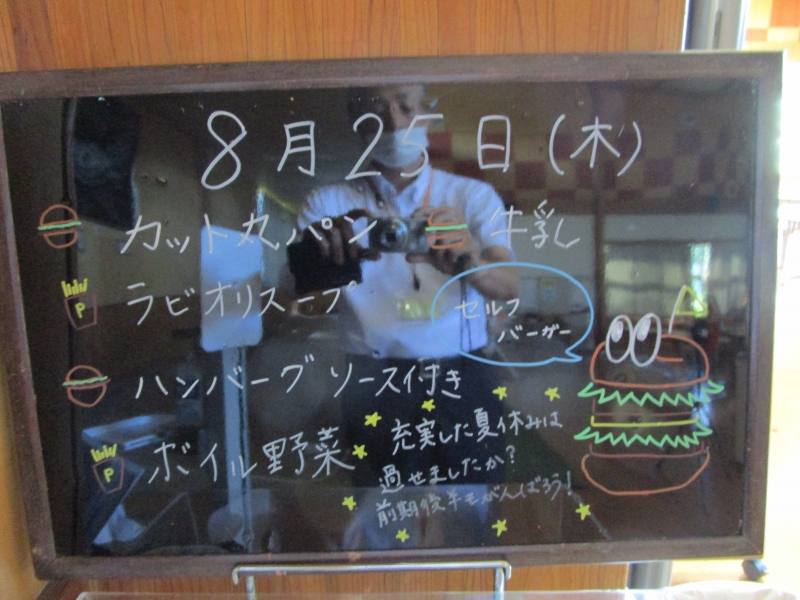 8月25日(木)
カット丸パン 牛乳
ラビオリスープ
セルフ
バーガー
ハンバーグ ソース付き
ボイル野菜
充実した夏休みは
過せましたか?
前期後半もがんばろう!
P
P